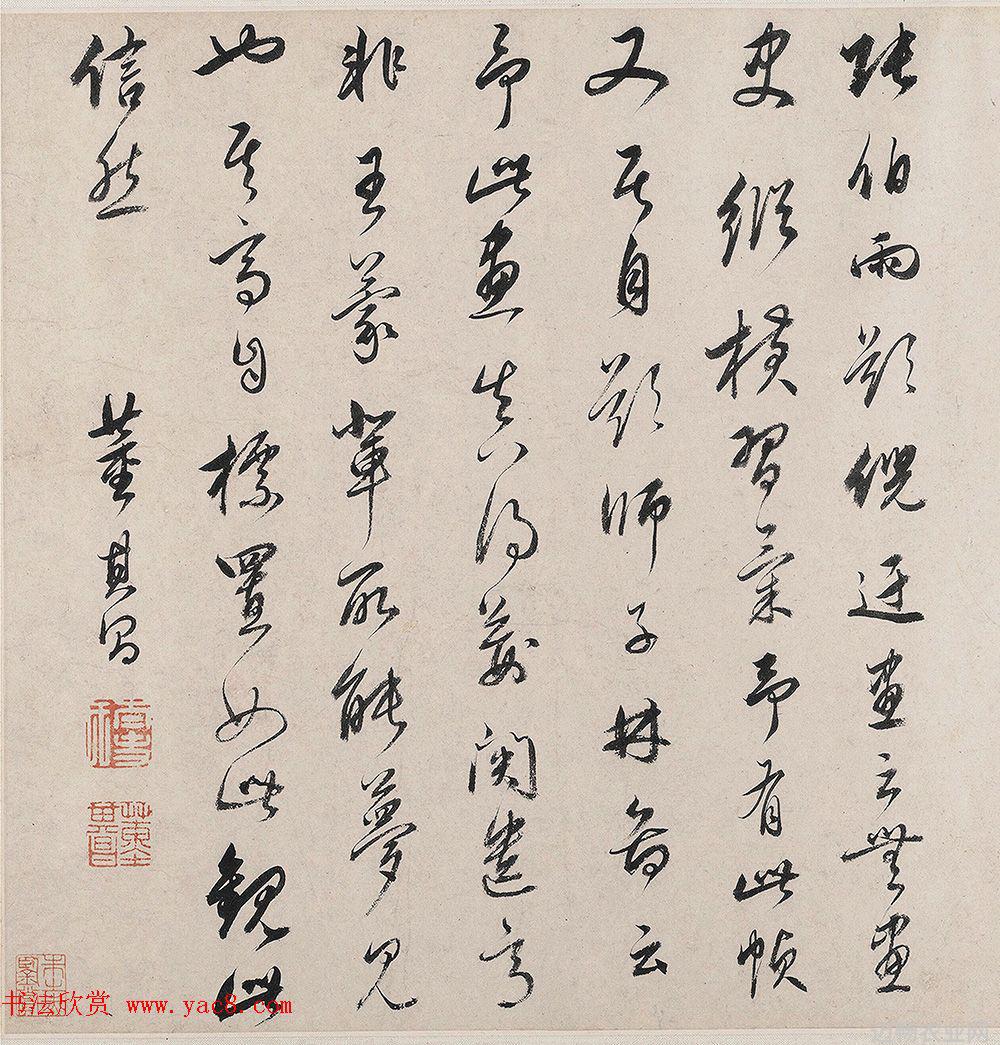 張伯雨題倪迂畫云無畫
史縱橫習氣予有此幀
又其自題師子林圖云
予此畫真得荊關遺意
非王蒙輩所能夢見
也其高自標置如此觀此
信然
董其昌
書法欣賞 www.yac8.com